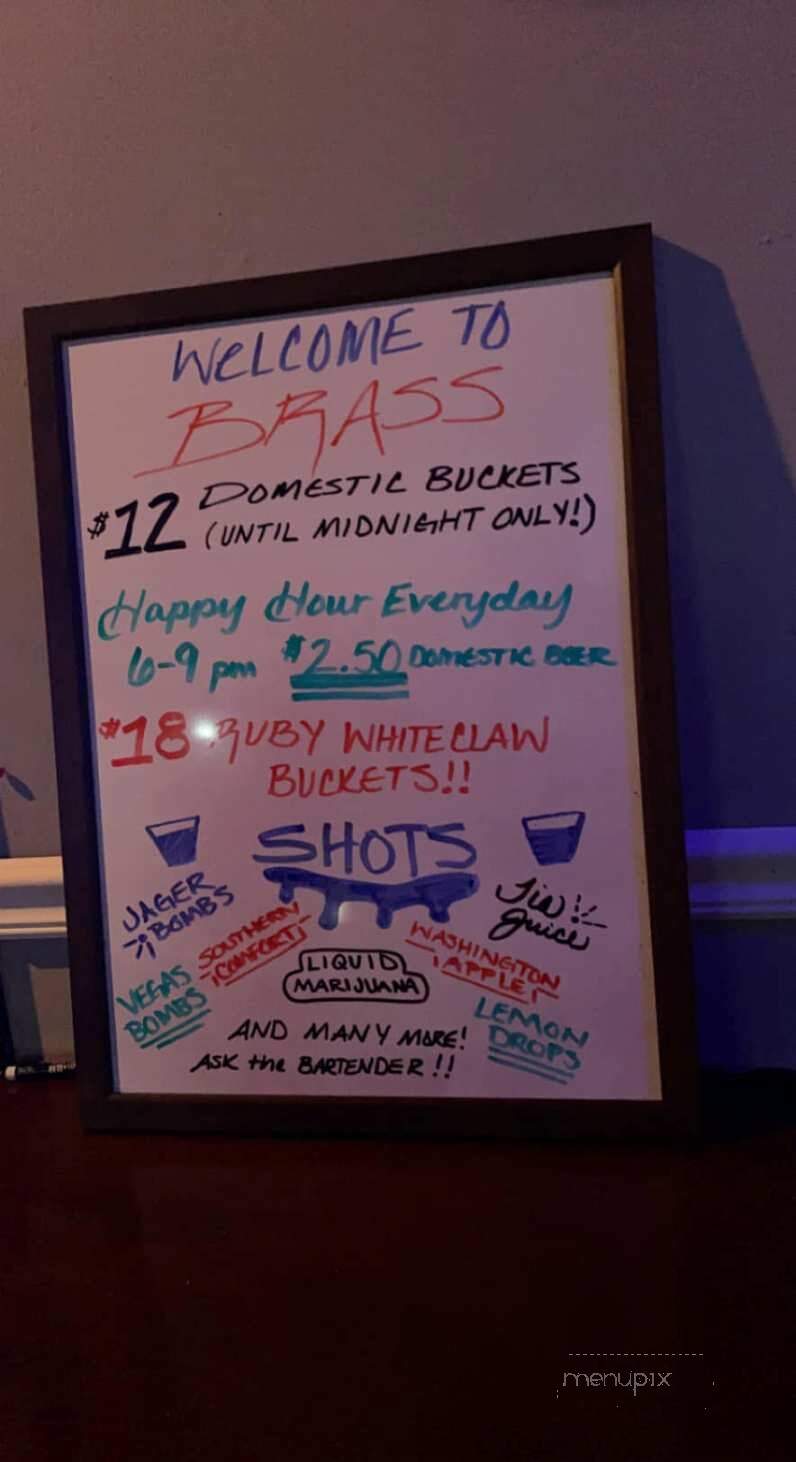 WELCOME TO
BRASS
$12 DOMESTIC BUCKETS
(UNTIL MIDNIGHT ONLY!)
Happy Hour Everyday
6-9 pm $2.50 DOMESTIC BEER
$18 RUBY WHITECLAW
BUCKETS!!
SHOTS
JAGER
BOMBS
SOUTHERN
COMFORT
VEGAS
BOMBS
LIQUID
MARIJUANA
WASHINGTON
APPLE
Juice
LEMON
DROPS
AND MANY MORE!
ASK the BARTENDER!!
menupix